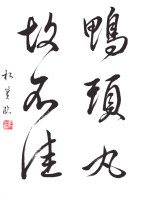 鴨頭丸
故不佳